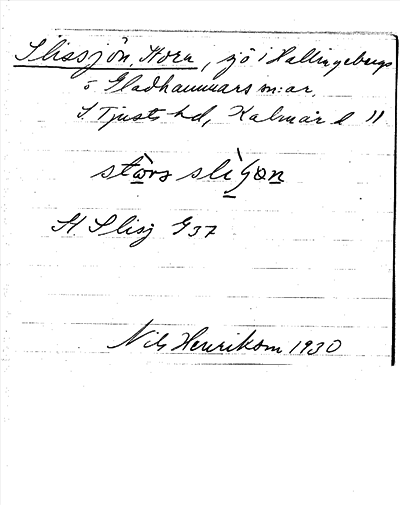 Slissjön, Stora, sjö i Hallingebergs
o Gladhammars sn:ar.
S Tjusts hd, Kalmar l
stòra slìʃɷn
St Slisj G37
Nils Henrikson 1930